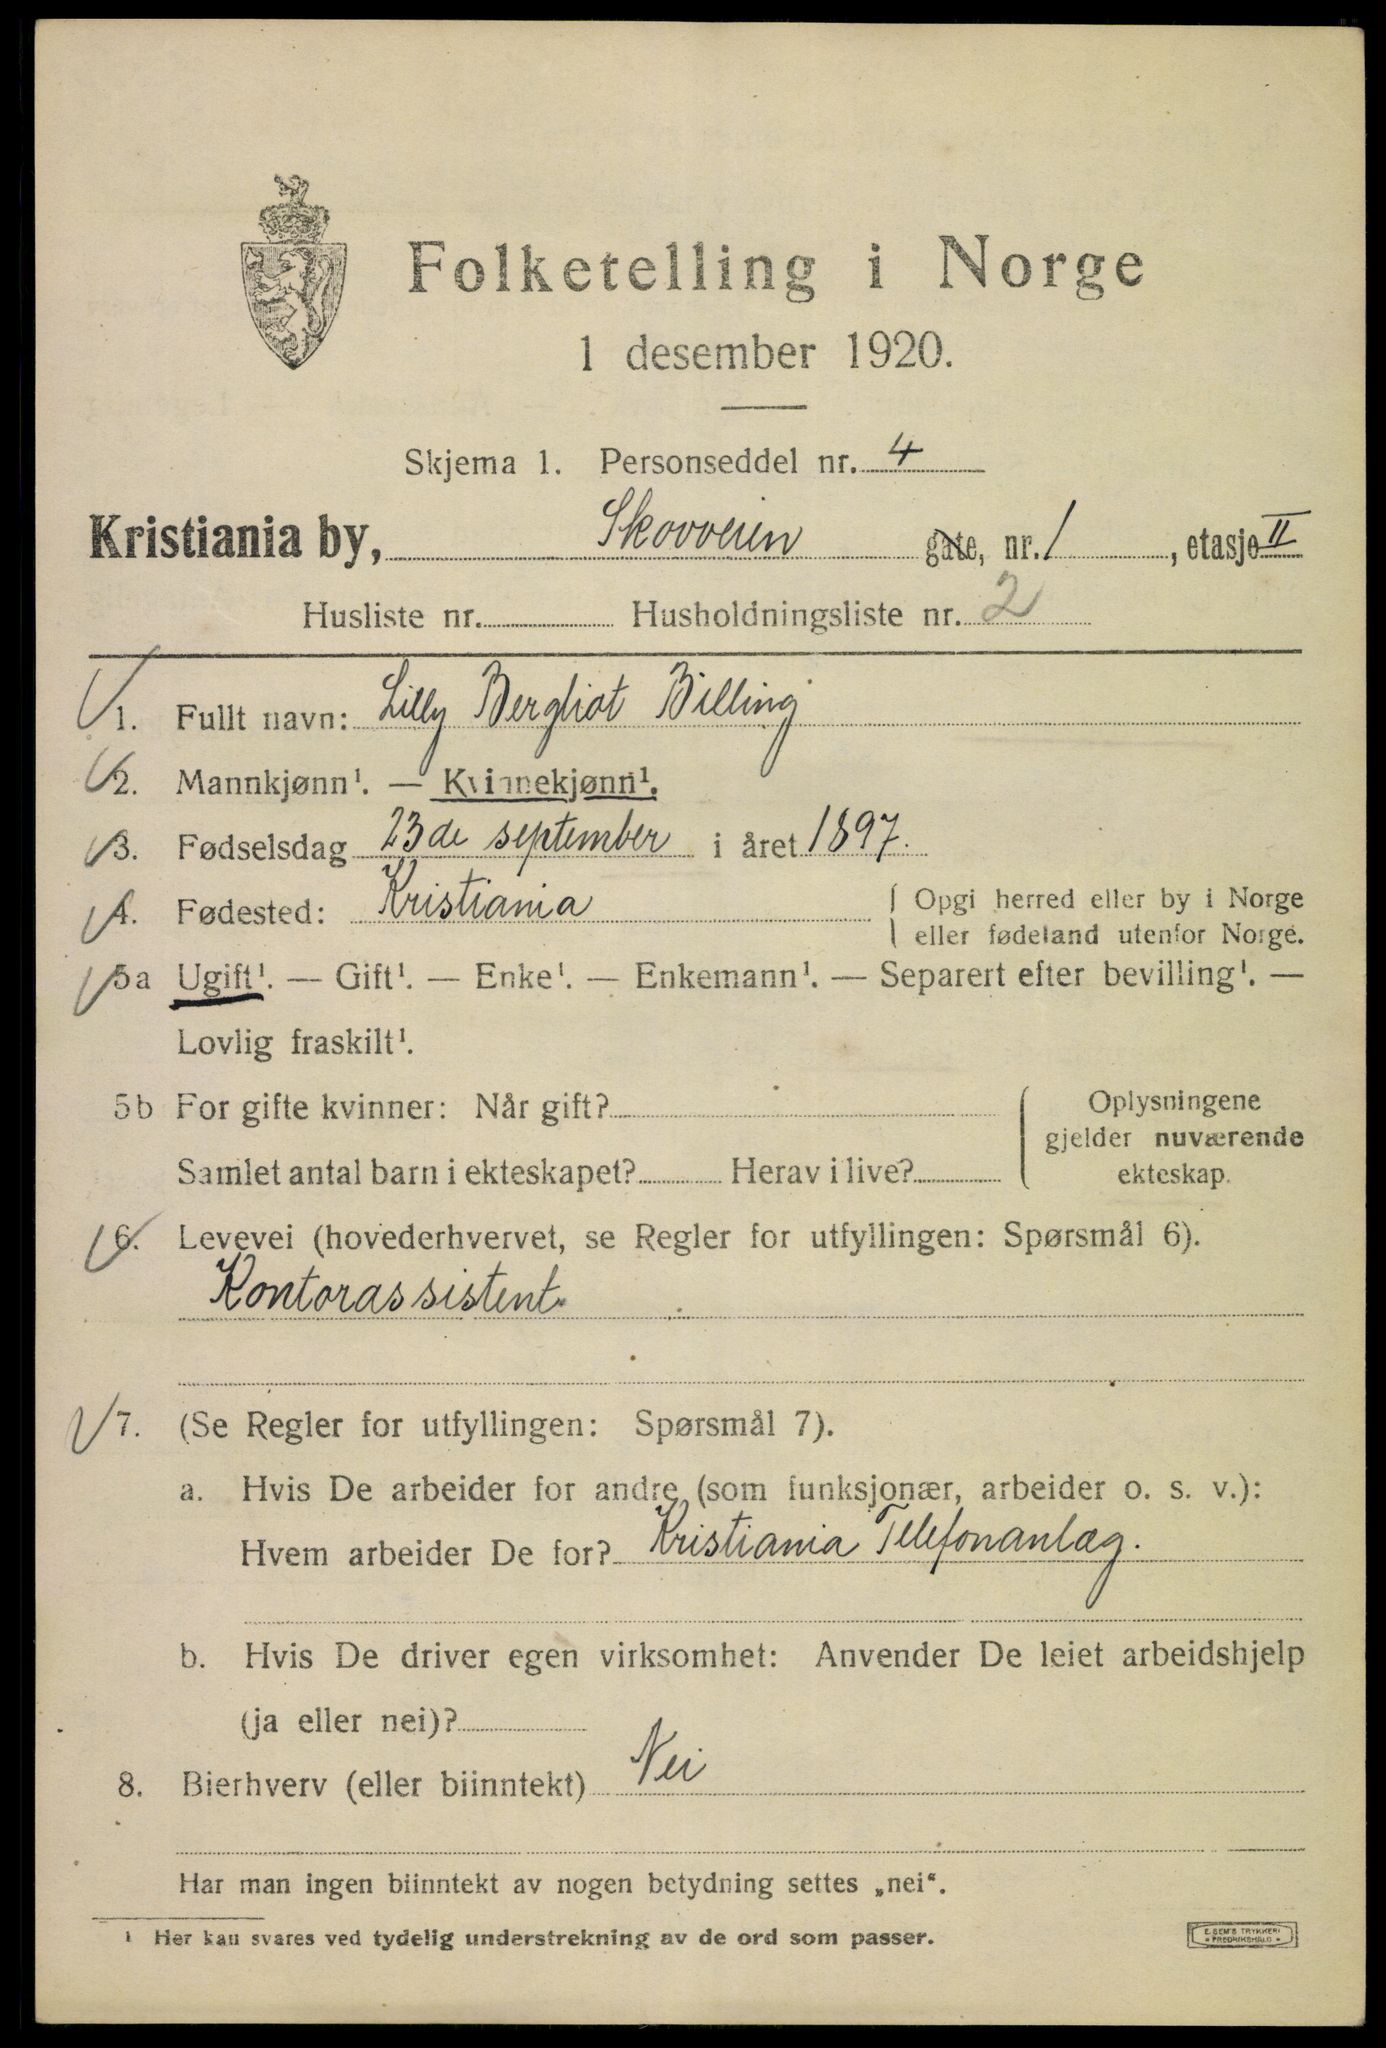 Folketelling i Norge
1 desember 1920.
Skjema 1. Personseddel nr. 4
Kristiania by, Skovveien gate, nr. 1, etasje II
Husliste nr. Husholdningsliste nr. 2
1. Fullt navn: Lilly Bergliot Billing
2. Mannkjønn¹. — Kvinnekjønn¹.
3. Fødselsdag 23de september i året 1897.
4. Fødested: Kristiania { Opgi herred eller by i Norge
eller fødeland utenfor Norge.
5a Ugift¹. — Gift¹. — Enke¹. — Enkemann¹. — Separert efter bevilling¹. —
Lovlig fraskilt¹.
5b For gifte kvinner: Når gift?
Samlet antal barn i ekteskapet? Herav i live?
Oplysningene
gjelder nuværende
ekteskap.
6. Levevei (hovederhvervet, se Regler for utfyllingen: Spørsmål 6).
Kontorassistent
7. (Se Regler for utfyllingen: Spørsmål 7).
a. Hvis De arbeider for andre (som funksjonær, arbeider o. s. v.):
Hvem arbeider De for? Kristiania Telefonanlæg.
b. Hvis De driver egen virksomhet: Anvender De leiet arbeidshjelp
(ja eller nei)?
8. Bierhverv (eller biinntekt) Nei
Har man ingen biinntekt av nogen betydning settes „nei“.
¹ Her kan svares ved tydelig understrekning av de ord som passer.
E. SEM'S TRYKKERI
FREDRIKSHALD